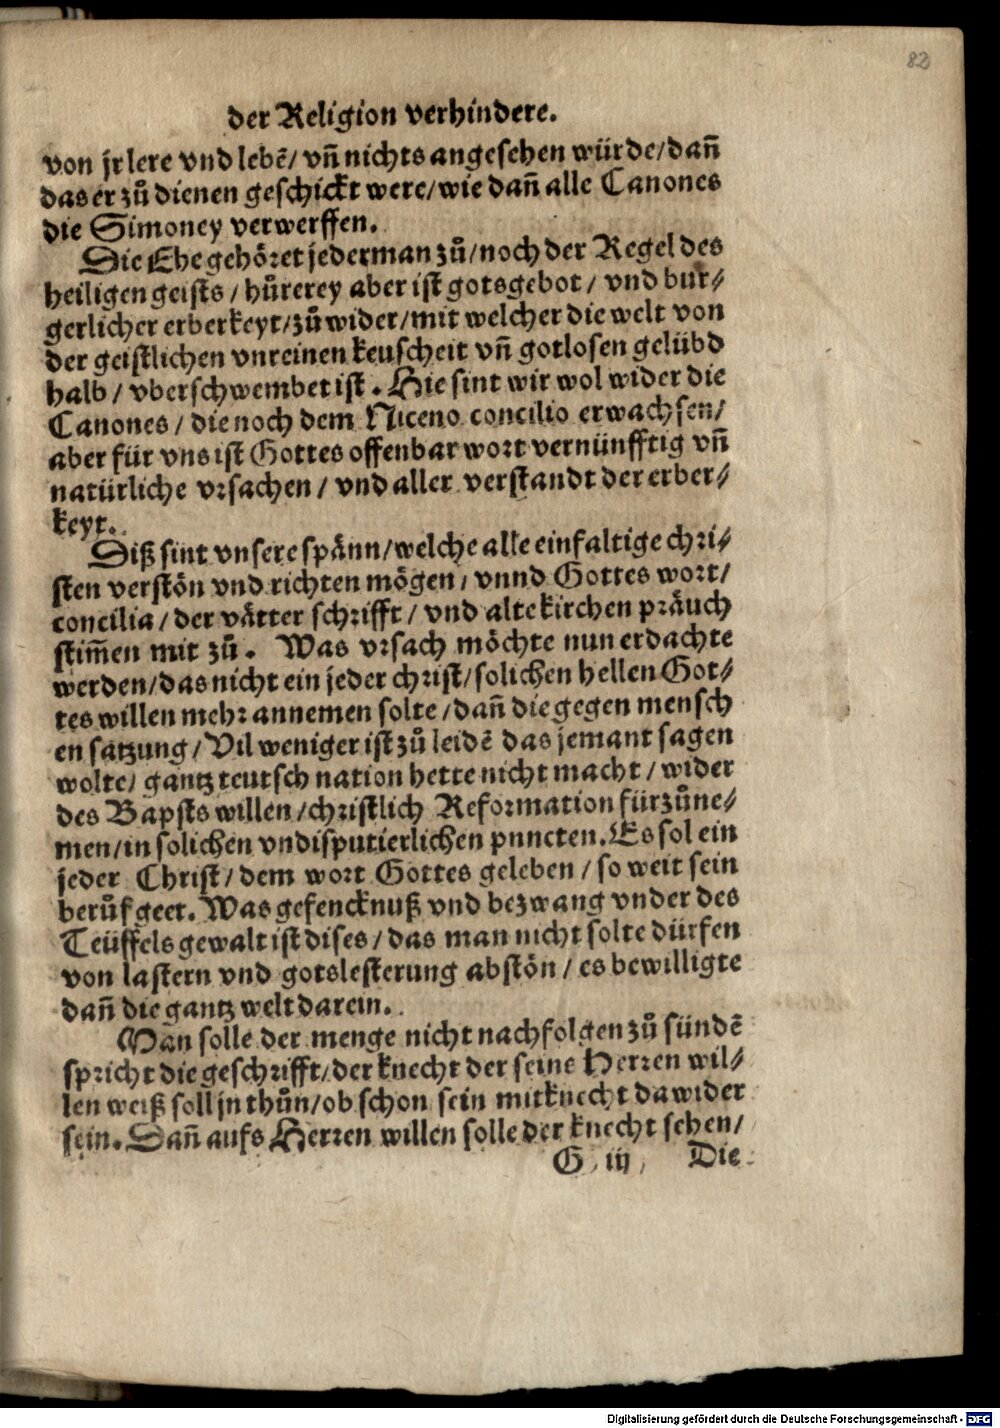 82
der Religion verhindere.
von jr lere vnd lebē/ vñ nichts angesehen würde/ dañ
das er zů dienen geschickt were/ wie dañ alle Canones
die Simoney verwerffen.
Die Ehe gehöret jederman zů/ noch der Regel des
heiligen geists/ hůrerey aber ist gots gebot/ vnd bur⸗
gerlicher erberkeyt/ zů wider/ mit welcher die welt von
der geistlichen vnreinen keuscheit vñ gotlosen gelübd
halb/ vberschwembet ist. Hie sint wir wol wider die
Canones/ die noch dem Niceno concilio erwachsen/
aber für vns ist Gottes offenbar wort vernünfftig vñ
natürliche vrsachen/ vnd aller verstandt der erber⸗
keyt.
Diß sint vnsere spänn/ welche alle einfaltige chri⸗
sten verstön vnd richten mögen/ vnnd Gottes wort/
concilia/ der vätter schrifft/ vnd alte kirchen präuch
stim̄en mit zů. Was vrsach möchte nun erdachte
werden/ das nicht ein jeder christ/ solichen hellen Got⸗
tes willen mehr annemen solte/ dañ die gegen mensch
en satzung/ Vil weniger ist zů leidē das jemant sagen
wolte/ gantz teutsch nation hette nicht macht/ wider
des Bapsts willen/ christlich Reformation fürzůne⸗
men/ in solichen vndisputierlichen puncten. Es sol ein
jeder Christ/ dem wort Gottes geleben/ so weit sein
berůf geet. Was gefencknuß vnd bezwang vnder des
Teüffels gewalt ist dises/ das man nicht solte dürfen
von lastern vnd gotslesterung abstön/ es bewilligte
dañ die gantz welt darein.
Man solle der menge nicht nachfolgen zů sündē
spricht die geschrifft/ der knecht der seine Herren wil⸗
len weiß soll jn thůn/ ob schon sein mitknecht dawider
sein. Dañ aufs Herren willen solle der knecht sehen/
G iij Die
Digitalisierung gefördert durch die Deutsche Forschungsgemeinschaft - DFG